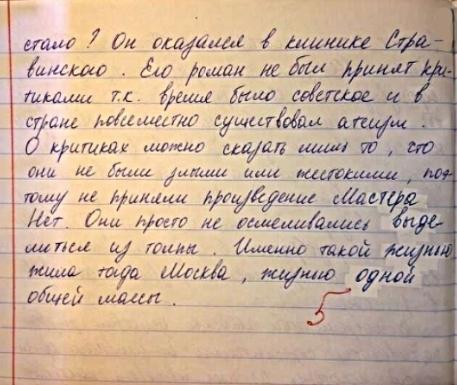 стало? Он оказался в клинике Стра-
винского. Его роман не был принят кри-
тиками т.к. время было советское и в
стране повсеместно существовал атеизм.
О критиках можно сказать лишь то, что
они не были злыми или жестокими, поэ-
тому не приняли произведение Мастера
Нет. Они просто не осмеливались выде-
литься из толпы. Именно такой жизнью
жила тогда Москва, жизнью одной
общей массы.
5